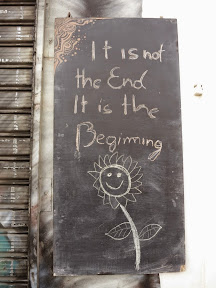 It is not
the End
It is the
Beginning